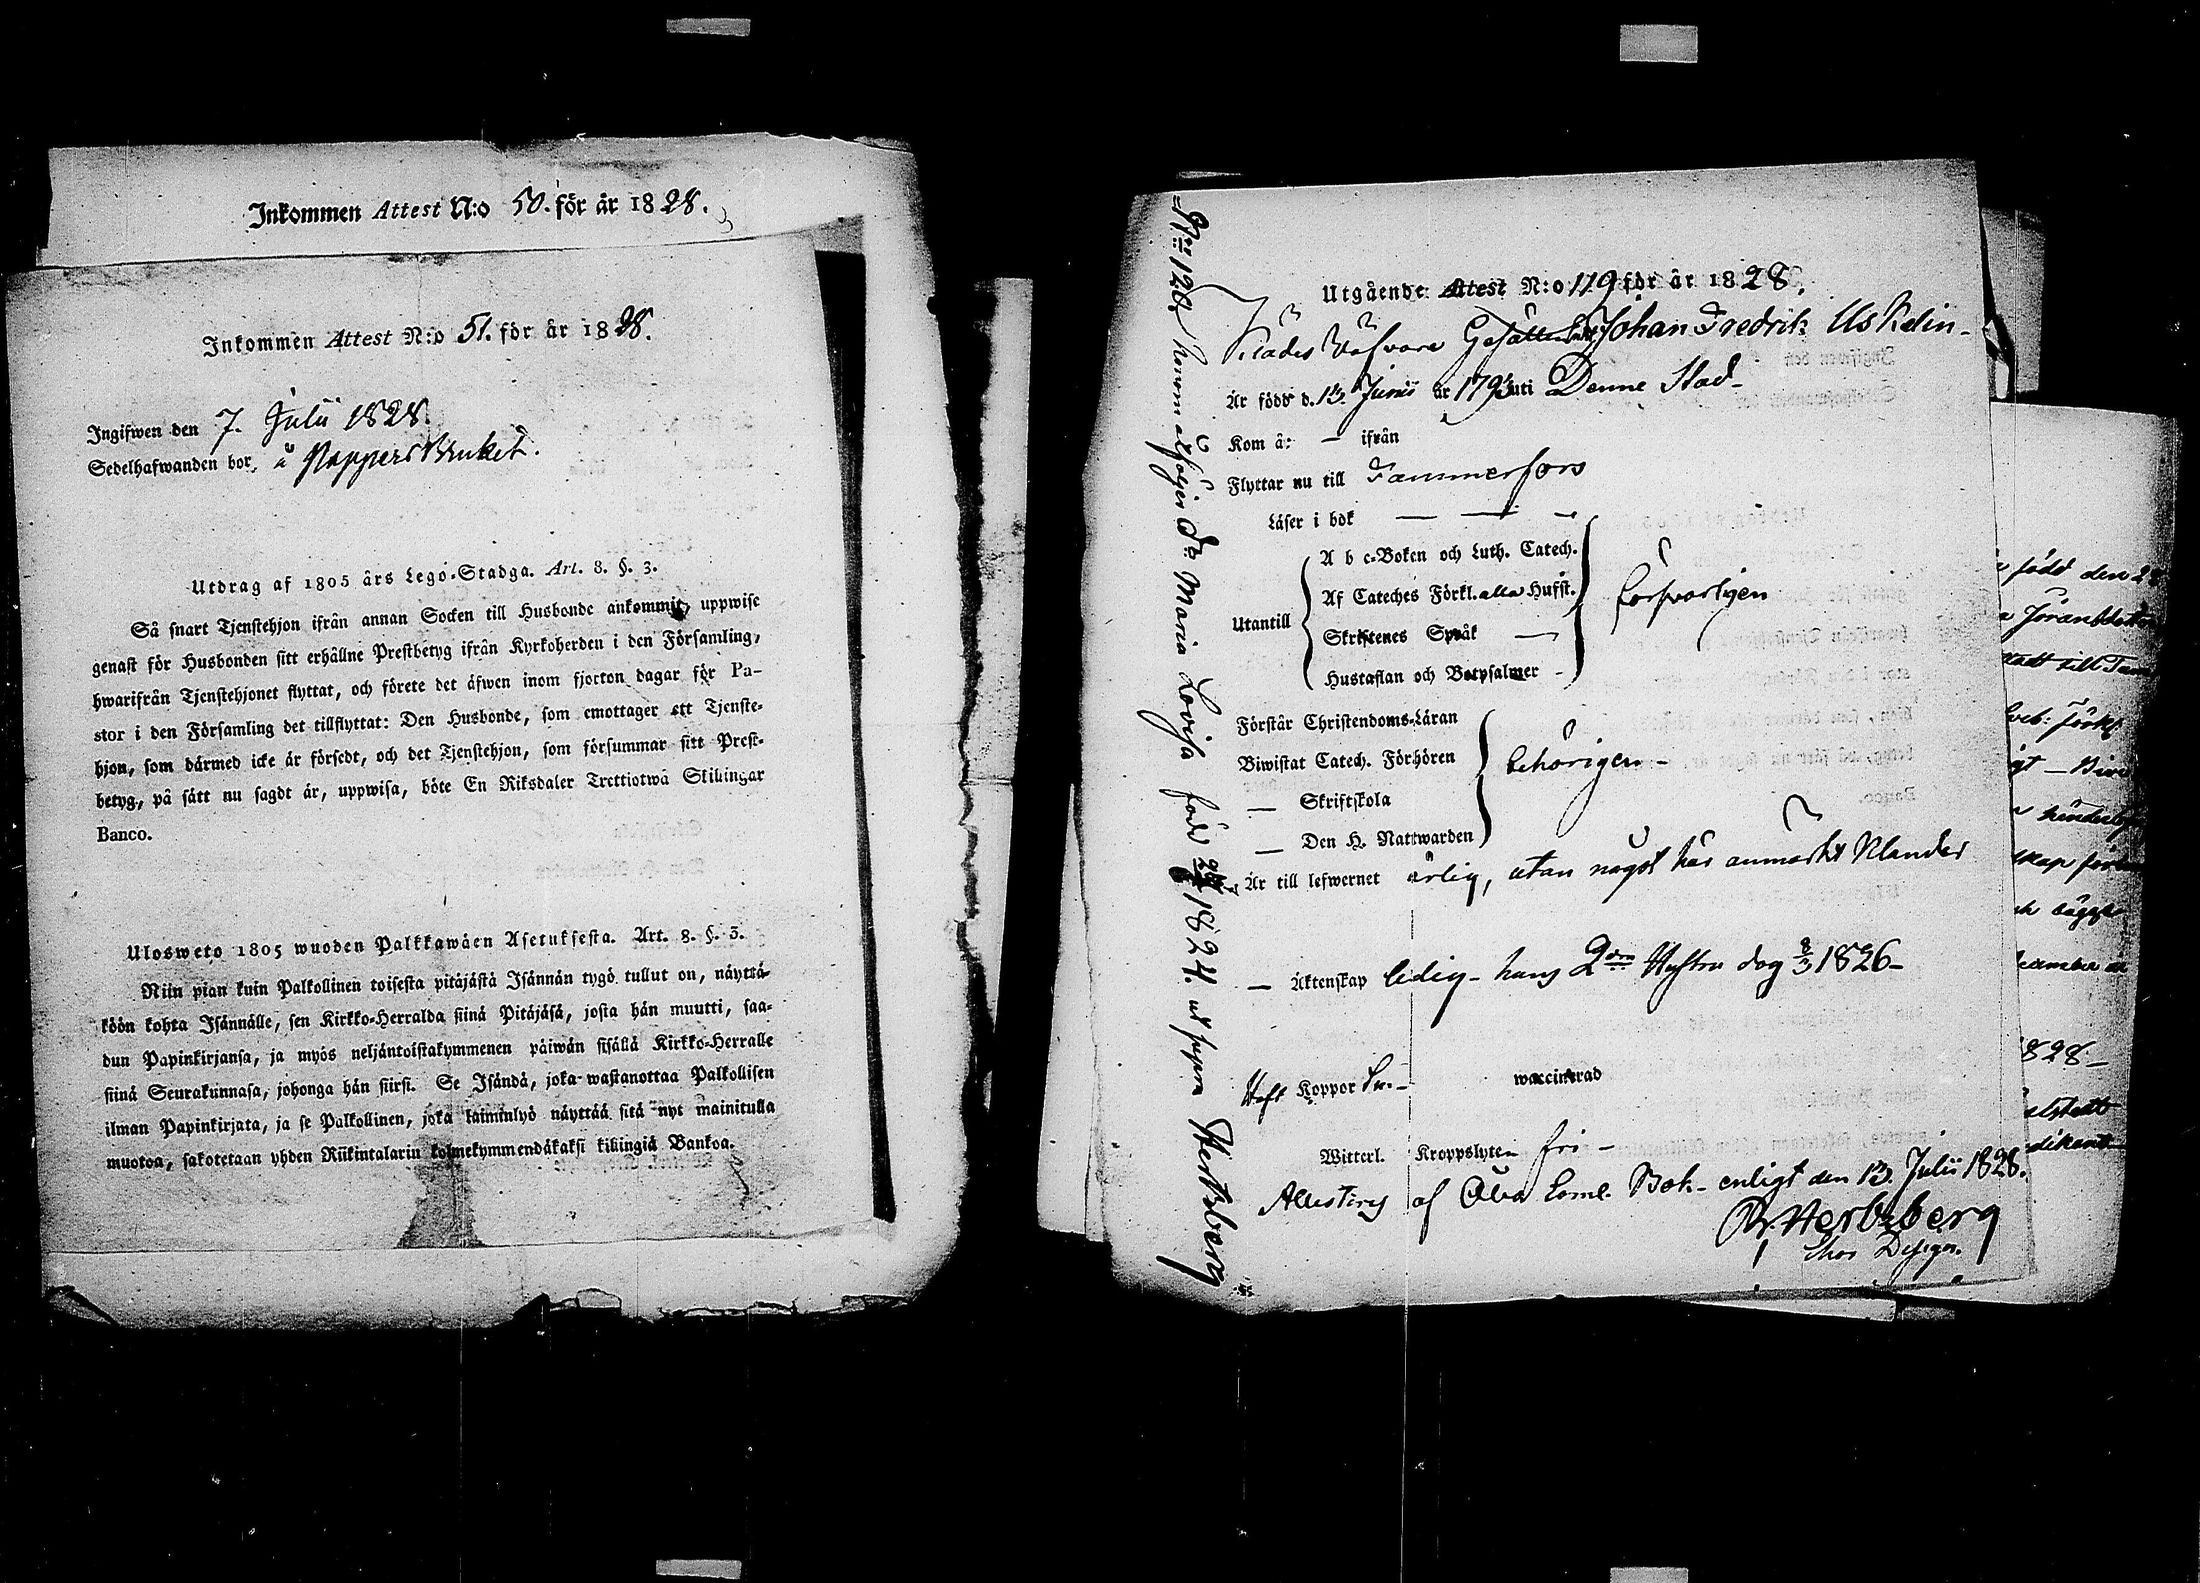 Inkommen Attest N:o 50. för år 1828.
Inkommen Attest N:o 51. för år 1828.
Ingifwen den 7. Julii 1828.
Sedelhafwanden bor å Pappers Bruket.
Utdrag af 1805 års Lego-Stadga. Art. 8. §. 3.
Så snart Tjenstehjon ifrån annan Socken till Husbonde ankommit, uppwise
genast för Husbonden sitt erhållne Prestbetyg ifrån Kyrkoherden i den Församling,
hwarifrån Tjenstehjonet flyttat, och förete det äfwen inom fjorton dagar för Pa-
stor i den Församling det tillflyttat: Den Husbonde, som emottager ett Tjenste-
hjon, som därmed icke är försedt, och det Tjenstehjon, som försummar sitt Prest-
betyg, på sätt nu sagdt är, uppwisa, böte En Riksdaler Trettiotwå Skillingar
Banco.
Ulosweto 1805 wuoden Palkkawäen Asetuksesta. Art. 8. §. 3.
Niin pian kuin Palkollinen toisesta pitäjästä Isännän tygö tullut on, näyttä-
köön kohta Isännälle, sen Kirkko-Herralda siinä Pitäjäsä, josta hän muutti, saa-
dun Papinkirjansa, ja myös neljäntoistakymmenen päiwän sisällä Kirkko-Herralle
siinä Seurakunnasa, johonga hän siirsi. Se Isändä, joka wastanottaa Palkollisen
ilman Papinkirjata, ja se Palkollinen, joka laiminlyö näyttää sitä nyt mainitulla
muotoa, sakotetaan yhden Riikintalarin kolmekymmendäkaksi killingiä Bankoa.
Utgående Attest N:o 119 för år 1828.
Klädes Väfvare Gesällen Johan Fredrik Uskelin-
Är född d. 13. Junii år 1793 uti Denne Stad-
Kom år — ifrån
Flyttar nu till Tammerfors
Läser i bok — — —
Utantill
A b c-Boken och Luth. Catech.
Af Cateches Förkl. alla Hufst.
Skriftenes Språk —
Hustaflan och Botpsalmer -
försvarligen
Förstår Christendoms-Läran
Biwistat Catech. Förhören
— Skriftskola
— Den H. Nattwarden
behörigen -
Är till lefwernet ärlig, utan något här anmärkt klander
— Äktenskap ledig - hans 2dra Hustru dog 8/3 1826-
Haft Koppor
waccinerad
Witterl. Kroppslyten fri -
Attesteras af Åbo Bok- enligt den 13. Julii 1828.
Hertzberg
N:o 120/ honom åtföljer Maria Lovisa född 1824. ut supra Hertzberg
född den 2
till Tam
1828-